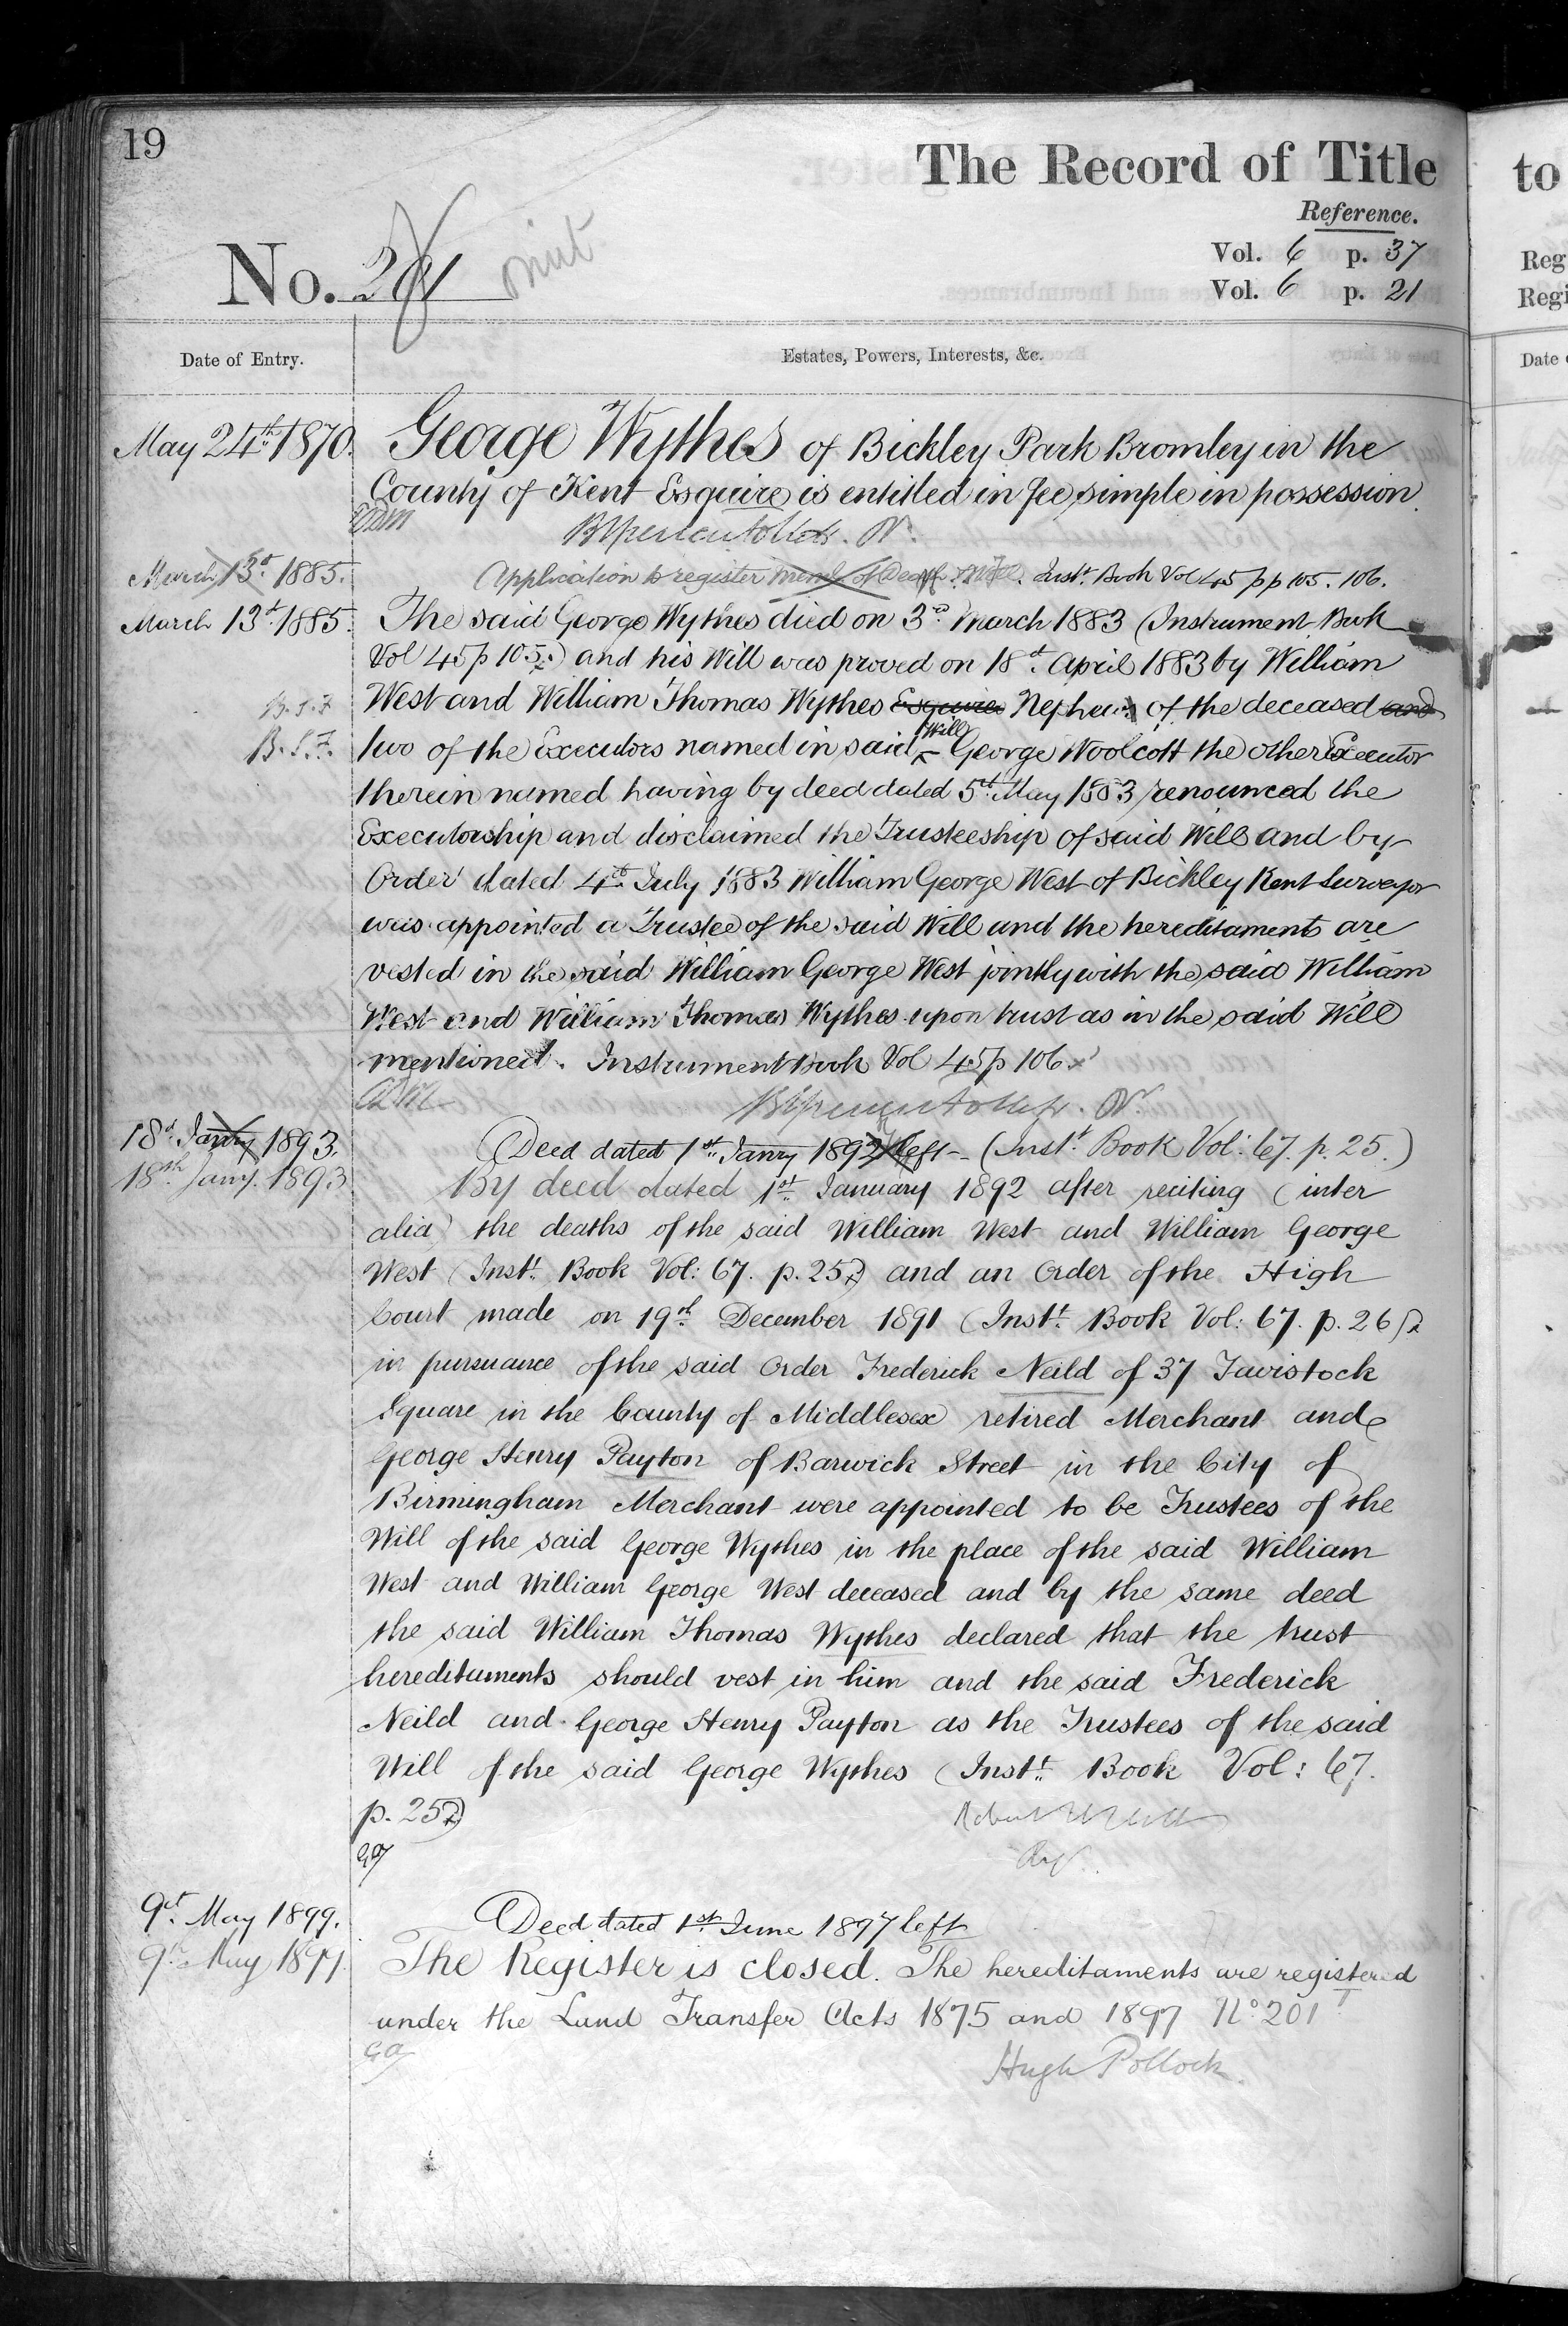 19
The Record of Title
Reference.
No. 201
Vol. 6 p. 37
Vol. 6 p. 21
Date of Entry.
Estates, Powers, Interests, &c.
May 24th 1870.
George Wythes of Bickley Park Bromley in the
County of Kent Esquire is entitled in fee simple in possession.
March 13th 1885.
Application to register Inst. Book Vol 45 pp 105. 106.
March 13th 1885.
The said George Wythes died on 3rd March 1883 (Instrument Book
Vol 45 p 105.) and his Will was proved on 18th April 1883 by William
B.S.F.
West and William Thomas Wythes Esquires Nephews of the deceased and
B.S.F.
two of the Executors named in said Will George Woolcott the other Executor
therein named having by deed dated 5th May 1883 renounced the
Executorship and disclaimed the Trusteeship of said Will and by
Order dated 4th July 1883 William George West of Bickley Kent Surveyor
was appointed a Trustee of the said Will and the hereditaments are
vested in the said William George West jointly with the said William
West and William Thomas Wythes upon trust as in the said Will
mentioned. Instrument Book Vol 45 p 106.
18th Janry 1893.
Deed dated 1st Janry 1892 left - (Instt. Book Vol: 67. p. 25.)
18th Jany. 1893
By deed dated 1st January 1892 after reciting (inter
alia) the deaths of the said William West and William George
West (Instt. Book Vol: 67. p. 25) and an Order of the High
Court made on 19th December 1891 (Instt. Book Vol: 67. p. 26)
in pursuance of the said Order Frederick Neild of 37 Tavistock
Square in the County of Middlesex retired Merchant and
George Henry Payton of Barwick Street in the City of
Birmingham Merchant were appointed to be Trustees of the
Will of the said George Wythes in the place of the said William
West and William George West deceased and by the same deed
the said William Thomas Wythes declared that the trust
hereditaments should vest in him and the said Frederick
Neild and George Henry Payton as the Trustees of the said
Will of the said George Wythes (Instt. Book Vol: 67.
p. 25)
9th May 1899.
Deed dated 1st June 1897 left
9th May 1899.
The Register is closed. The hereditaments are registered
under the Land Transfer Acts 1875 and 1897 No 201
Hugh Pollock.
to
Reg
Regi
Date